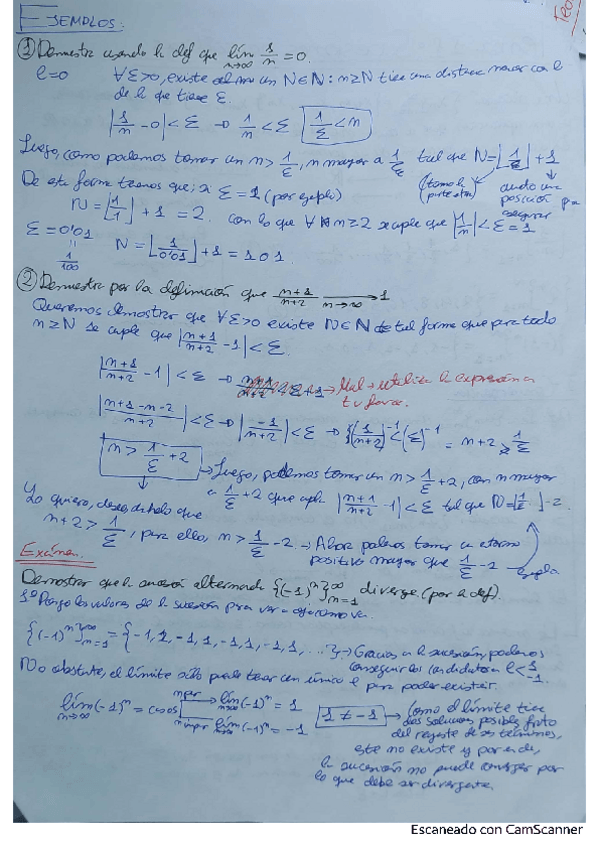 EJEMPLOS:
① Demuestra usando la def que lim n→∞ 1/n = 0.
l=0 ∀ε>0, existe al menos un N∈ℕ: n≥N tiene una distancia menor con l
de la que tiene ε.
|1/n - 0| < ε → 1/n < ε 1/ε < n
Luego, como podemos tomar un n > 1/ε, n mayor a 1/ε tal que N=⌊1/ε⌋+1
De esta forma tenemos que; si ε=1 (por ejemplo) (tomo la parte entera) una posición para asegurar
N = ⌊1/1⌋ + 1 = 2. con lo que ∀ n≥2 se cumple que |1/n| < ε = 1
ε = 0'01 N = ⌊1/0'01⌋ + 1 = 101.
1/100
② Demuestra por la definición que n+1/n+2 n→∞ → 1
Queremos demostrar que ∀ε>0 existe N∈ℕ de tal forma que para todo
n≥N se cumple que |n+1/n+2 - 1| < ε.
|n+1/n+2 - 1| < ε → n+1/n+2 < ε+1 → Mal → utiliza la expresión a
tu favor.
|n+1-n-2/n+2| < ε → |-1/n+2| < ε → (1/n+2)⁻¹ < (ε)⁻¹ = n+2 > 1/ε
n > 1/ε + 2 → Luego, podemos tomar un n > 1/ε + 2, con n mayor
a 1/ε + 2 que cumpla |n+1/n+2 - 1| < ε tal que N=⌊1/ε⌋-2
Lo quiero, despejándolo que
n+2 > 1/ε, para ello, n > 1/ε - 2 → Ahora podemos tomar un entero
positivo mayor que 1/ε - 2 cumpla
Exámen.
Demostrar que la sucesión alternada {(-1)ⁿ}∞n=1 diverge (por la def).
1º Pongo los valores de la sucesión para ver a dónde va.
{(-1)ⁿ}∞n=1 = {-1, 1, -1, 1, -1, 1, -1, 1, ...} → Gracias a la sucesión, podemos
conseguir los candidatos a l < 1 -1.
No obstante, el límite sólo puede tener un único l para poder existir.
lim n→∞ (-1)ⁿ = casos n par lim n→∞ (-1)ⁿ = 1
n impar lim n→∞ (-1)ⁿ = -1
1 ≠ -1 → Como el límite tiene
dos soluciones posibles, fruto
del resto de sus términos,
este no existe y por ende,
la sucesión no puede converger por
lo que debe ser divergente.
Escaneado con CamScanner